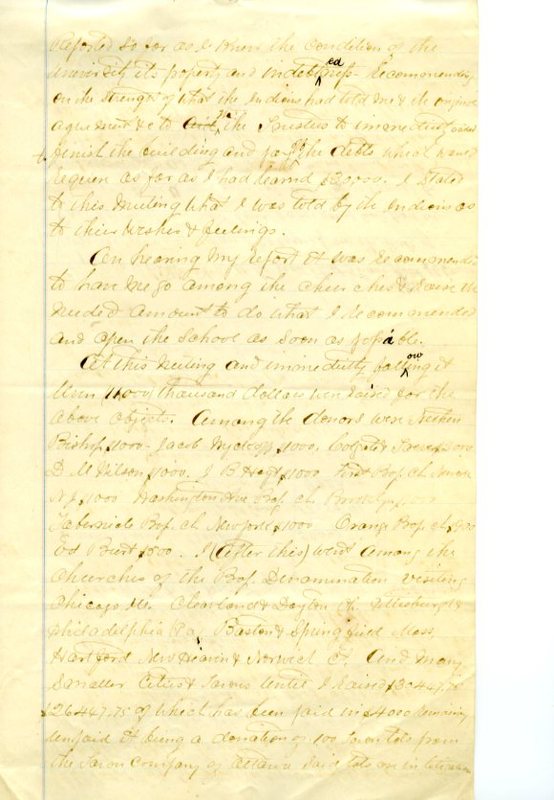 reported so far as I knew the condition of the
university its property and indebtedness - Recomending
on the strength of what the Indians had told me & the original
agreement &c to the Trustees to imediately
finish the building and pay the debts which would
require as far as I had learnd I stated
to this meeting what I was told by the Indians as
to their wishes & feelings.
On hearing my report it was recommended
to have me go among the churches & raise the
needed amount to do what I recommended
and open the school as soon as possable.
At this meeting and imediatly following it
thousand dollars were raised for the
above objects. Among the donors were Nathan
Bishop $1000 - Jacob Wyckoff $1000, Colgate
D M Wilson $1000. J B Hoyt $1000 First Bap. Ch Newark
N J $1000 Washington Ave Bap. Ch. Brooklyn
Tabernicle Bap. Ch New York $1000 Orange Bap. ch
$500. I (after this) went among the
Churches of the Bap. Dinamination visiting
Chicago Cleavland & Dayton O. Pittsburgh &
Philadelphia Pa, Boston & Springfield Mass,
Hartford New Heavin & Norwich Ct, and many
smaller Cities & Towns until I raised $30447.75
$26447.75 of which has been paid in $4000 remaining
unpaid it being a donation of 100 Town lots from
the Town Company of Ottawa said lots